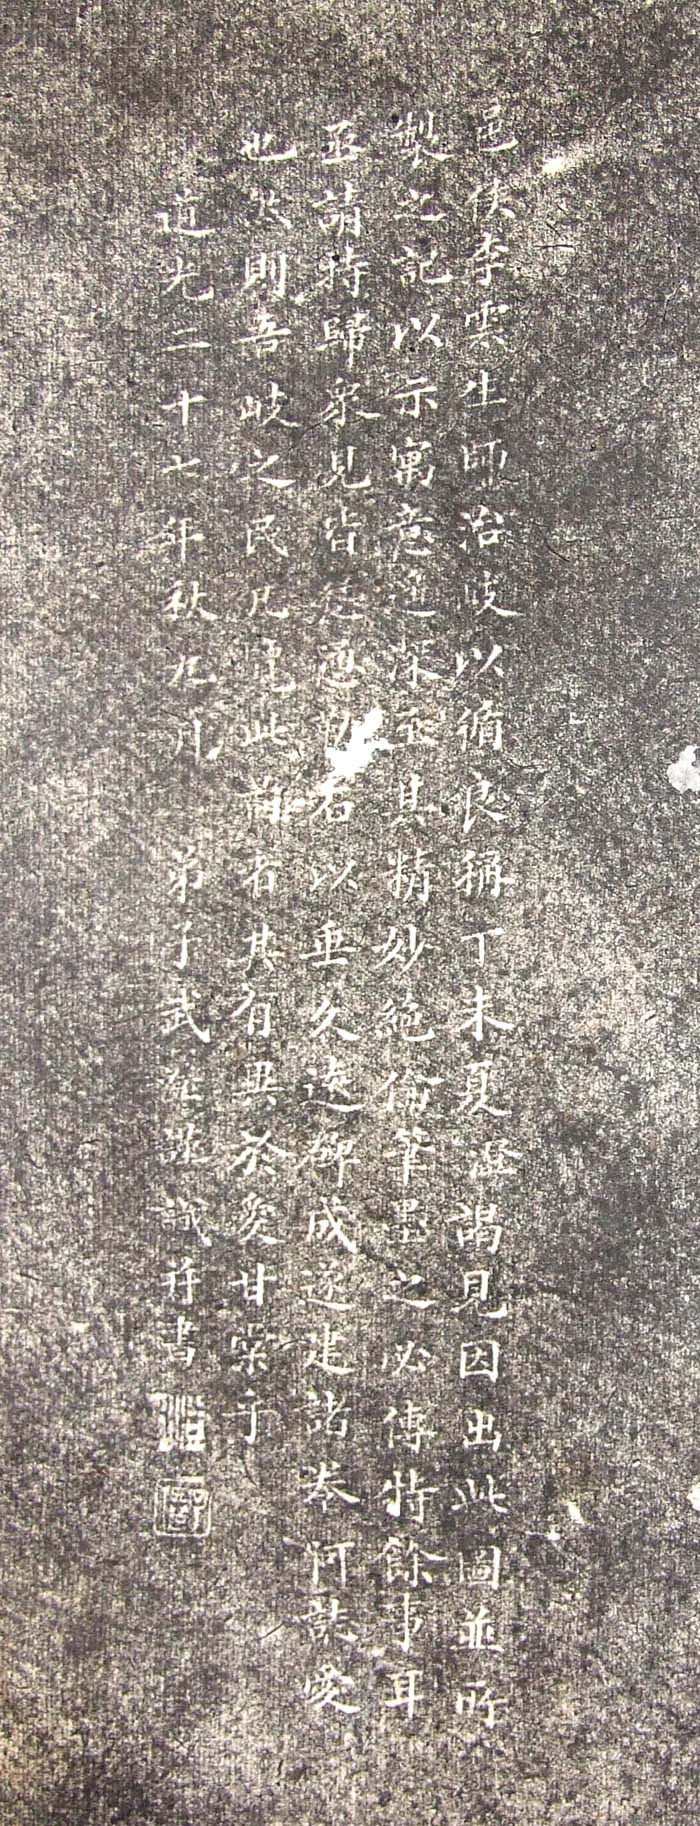 邑侯李雲生師治岐以循良稱丁未夏澄謁見因出此圖並所
製之記以示寓意遙深並具精妙絕倫筆墨之必傳特餘事耳
亟請持歸衆見皆慫恿切石以垂久遠碑成遂建諸奉阿誌愛
也然則吾岐之民凡覩此翰者其有異於愛甘棠乎
道光二十七年秋九月 弟子武澄謹識并書